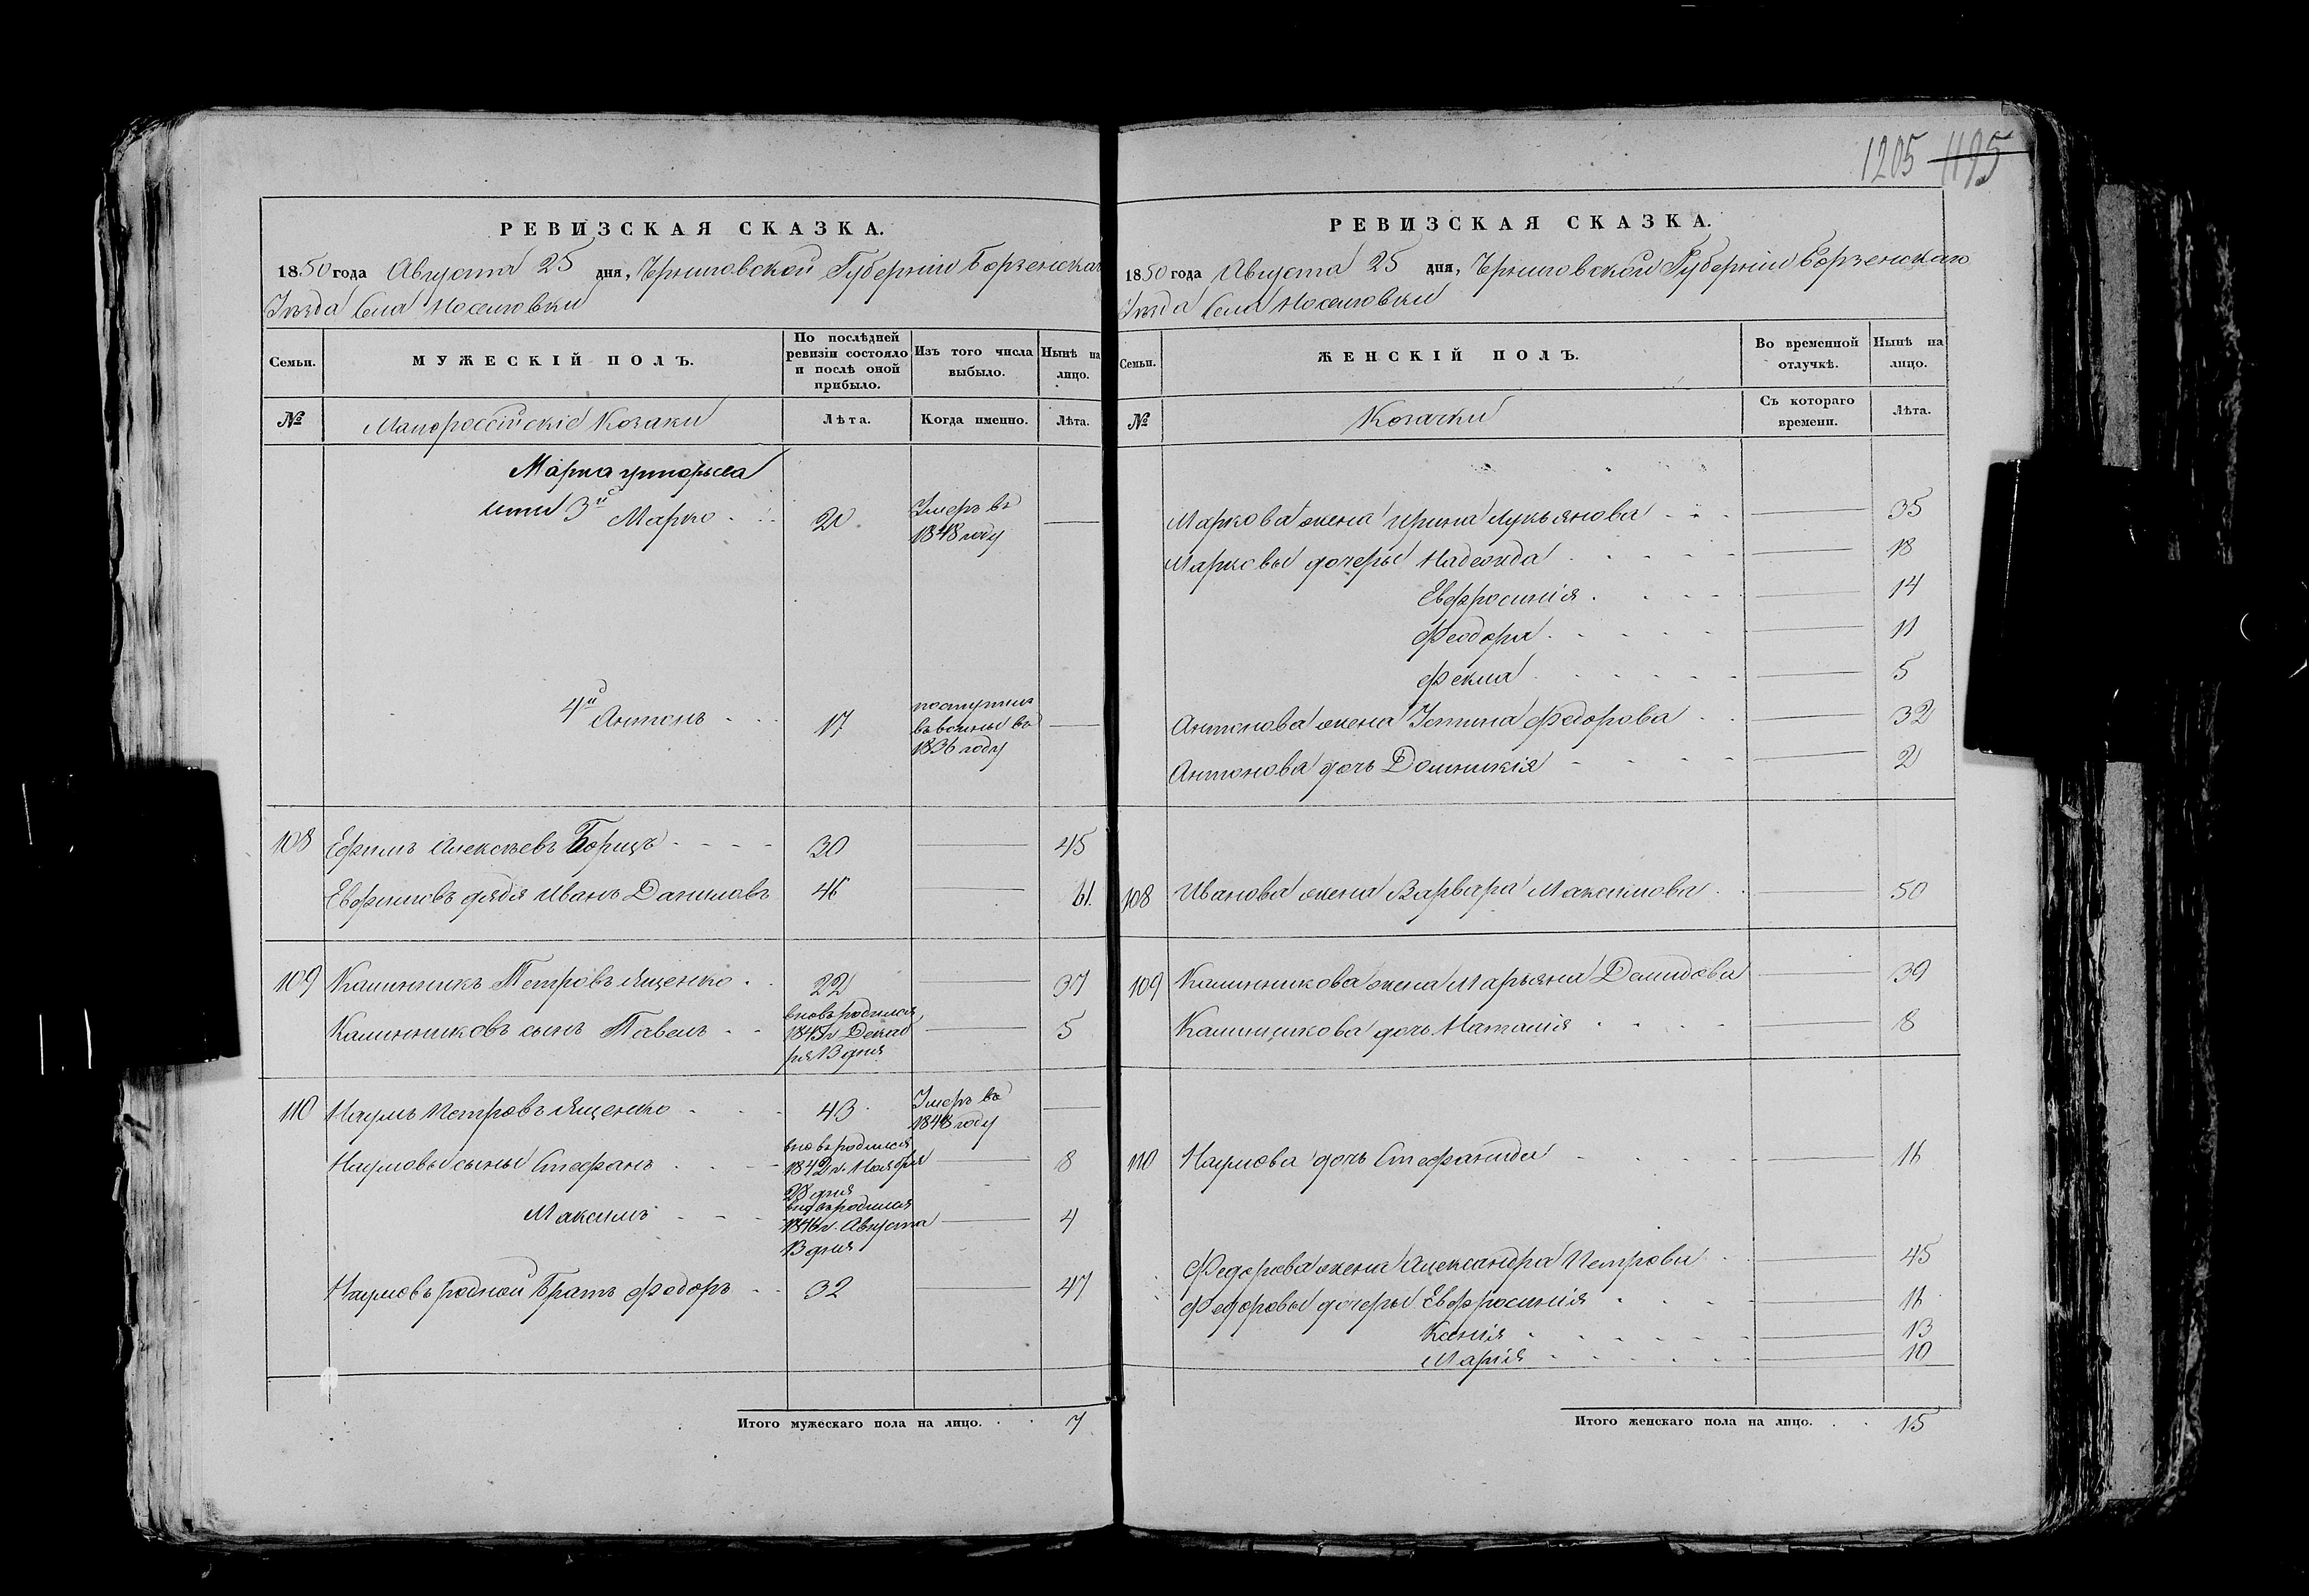 1205 1195
РЕВИЗСКАЯ СКАЗКА.
1850 года Августа 25 дня, Черниговской Губернии Борзенскаго
Уезда Села Носеловки
Семьи. МУЖЕСКІЙ ПОЛЪ. По послѣдней ревизіи состояло и послѣ оной прибыло. Изъ того числа выбыло. Нынѣ на лицо.
№ Малороссійскіе Козаки Лѣта. Когда именно. Лѣта.
Марка
3й Марко 20 Умеръ въ 1848 году
4й Антонъ 17 поступил въ военные въ 1836 году
108 Ефимъ Алексѣевъ Борщъ 30 45
Евфимовъ дядя Иванъ Даниловъ 46 61
109 Калинникъ Петровъ Ященко 22 37
Калинниковъ сынъ Павелъ вновь родился 1845 г. Декабря 13 дня 5
110 Наумъ Петровъ Ященко 43 Умеръ въ 1848 году
Наумовы сыны Стефанъ вновь родился 1842 г. Ноября 28 дня 8
Максимъ вновь родился 1846 г. Августа 13 дня 4
Наумовъ родной братъ Федоръ 32 47
Итого мужескаго пола на лицо. 7
РЕВИЗСКАЯ СКАЗКА.
1850 года Августа 25 дня, Черниговской Губерніи Борзенскаго
Уезда Села Носеловки
Семьи. ЖЕНСКІЙ ПОЛЪ. Во временной отлучкѣ. Нынѣ на лицо.
№ Козачки Съ котораго времени. Лѣта.
Маркова жена Ирина Лукьянова 35
Марковы дочеры Надежда 18
Евфросинія 14
Феодора 11
Фекла 5
Антонова жена Устина Федорова 32
Антонова дочь Домникія 2
108 Иванова жена Варвара Максимова 50
109 Калинникова жена Марьяна Демидова 39
Калинникова дочь Наталія 8
110 Наумова дочь Стефанида 16
Федорова жена Александра Петрова 45
Федоровы дочеры Евфросинія 16
Ксенія 13
Марія 10
Итого женскаго пола на лицо. 15